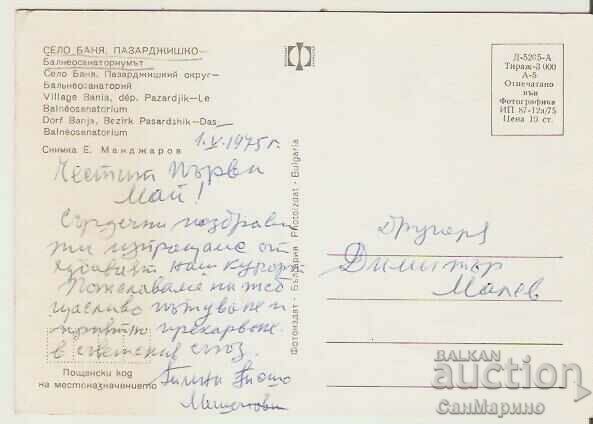 СЕЛО БАНЯ, ПАЗАРДЖИШКО—
Балнеосанаториумът
Село Баня, Пазарджишкий округ—
Бальнеосанаторий
Village Bania, dép. Pazardjik—Le
Balnéosenatorium
Dorf Banja, Bezirk Pasardshik—Das
Balnéosenatorium
Снимка Е. Манджаров
1.V.1975 г.
Честит Първи
Май!
Сърдечни поздрави
ти изпращаме от
хубавият наш курорт
Пожелаваме ти
щасливо пътуване и
приятно прекарване
в съветския съюз.
Пощенски код
на местоназначението
Фотоиздат - България Photoizdat - Bulgaria
Д-5265-А
Тираж 3 000
А-5
Отпечатано
във
Фотографика
ИП 87-12а/75
Цена 10 ст.
Другаря
Димитър
Малев
BALKAN
auction
СанМарино